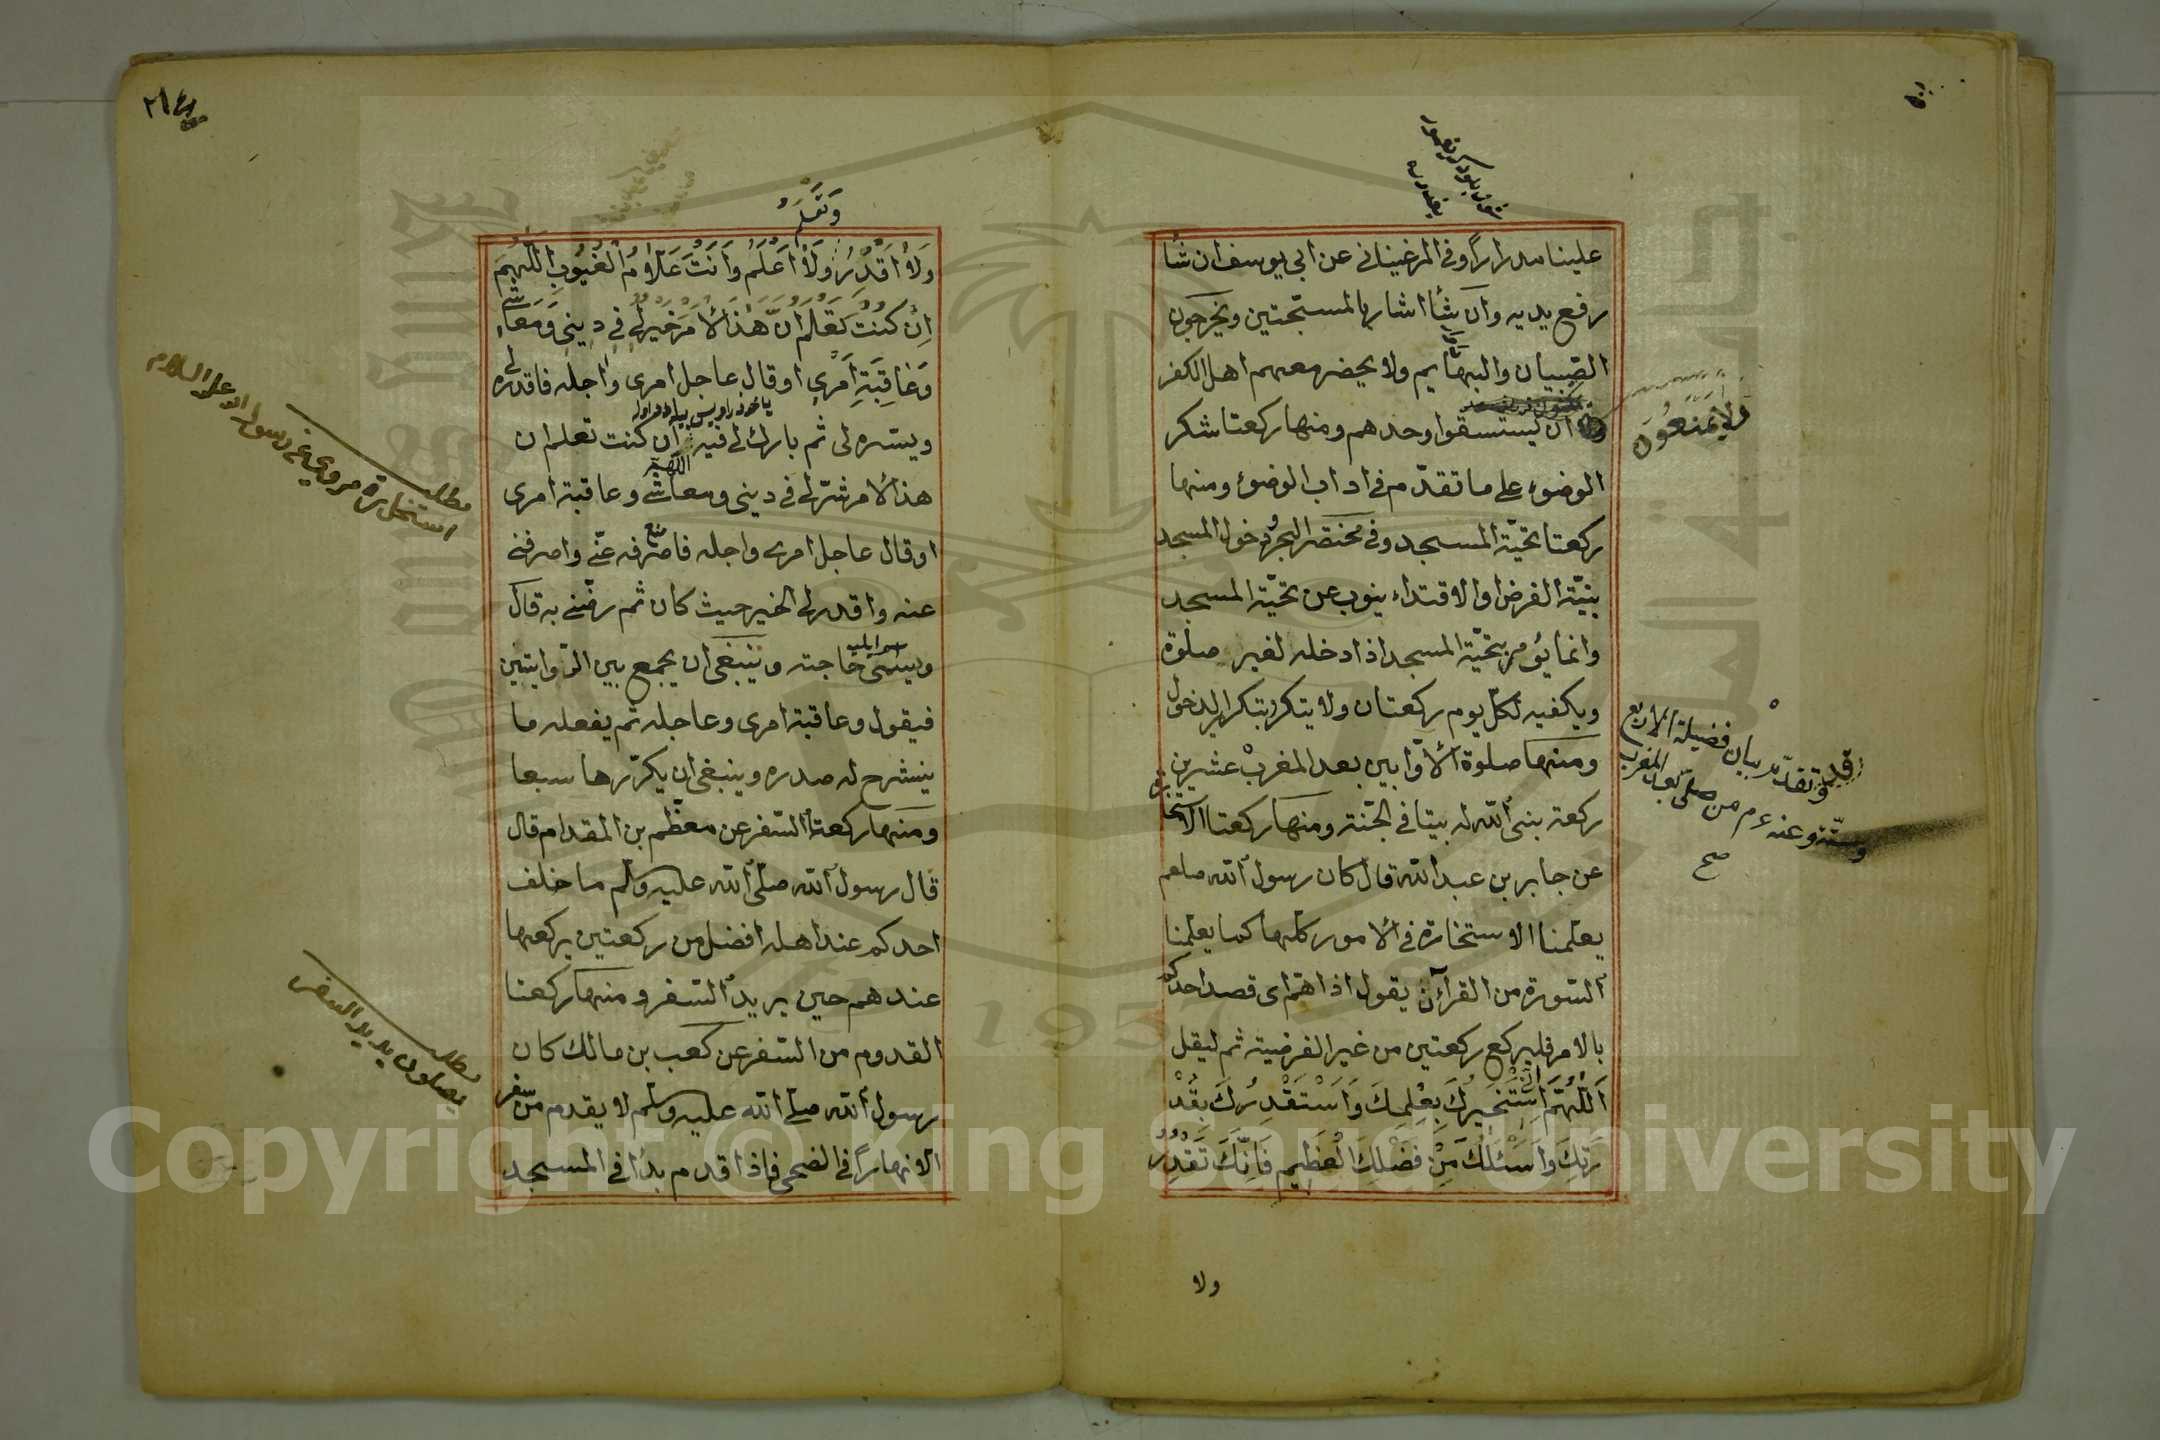 علينا مدرارًا وفي المرغيناني عن ابي يوسف ان شأ
رفع يديه وان شأ اشار بالمسبّحتين ويخرجون
الصّبيان والبهايم ولا يحضر معهم اهل الكفر
ولا يمنعون
ان يستسقوا وحدهم ومنها ركعتا شكر
الوضوء على ما تقدّم في اداب الوضوء ومنها
ركعتا تحيّة المسجد وفي مختصر البحر دخول المسجد
بنيّة الفرض او الاقتداء ينوب عن تحيّة المسجد
وانما يؤمر بتحيّة المسجد اذا دخله لغير صلوة
ويكفيه لكلّ يوم ركعتان ولا يتكرر بتكرار الدخول
ومنها صلوة الأوّابين بعد المغرب عشرين
ركعة بنى الله له بيتا في الجنّة ومنها ركعتا الاستخارة
عن جابر بن عبد الله قال كان رسول الله صلعم
يعلّمنا الاستخارة في الأمور كلّها كما يعلّمنا
السّورة من القرآن يقول اذا همّ اى قصد احدكم
بالامر فليركع ركعتين من غير الفرضية ثم ليقل
اَللّٰهُمَّ اِنّى اَسْتَخِيرُكَ بِعِلْمِكَ وَاَسْتَقْدِرُكَ بِقُدْ
رَتِكَ وَاَسْئَلُكَ مِنْ فَضْلِكَ الْعَظِيمِ فَاِنَّكَ تَقْدِرُ
ولا
وقد تقدّم بيان فضيلة الاربع
وستّة وعنه ءم من صلّى بعد المغرب
صح
وَتَعْلَمُ
وَلَا اَقْدِرُ وَلَا اَعْلَمُ وَاَنْتَ عَلَّامُ الْغُيُوبِ اَللّٰهُمَّ
اِنْ كُنْتَ تَعْلَمُ اَنَّ هٰذَا الْأَمْرَ خَيْرٌ لِى فِى دِينِى وَمَعَاشِى
وَعَاقِبَةِ اَمْرِى او قال عاجل امرى واجله فاقدره لى
ويسّره لى ثم بارك لى فيه اللهم ان كنت تعلم ان
هذا الامر شرّ لى في دينى ومعاشى وعاقبة امرى
او قال عاجل امرى واجله فاصرفه عنّى واصرفنى
عنه واقدر لى الخير حيث كان ثم رضّنى به قال
ويسمّى حاجته وينبغى ان يجمع بين الرّوايتين
فيقول وعاقبة امرى وعاجله ثم يفعله ما
ينشرح له صدره وينبغى ان يكرّرها سبعا
ومنها ركعتا السّفر عن معظّم بن المقدام قال
قال رسول الله صلّى الله عليه وسلّم ما خلف
احدكم عند اهله افضل من ركعتين يركعهما
عندهم حين يريد السّفر ومنها ركعتا
القدوم من السّفر عن كعب بن مالك كان
رسول الله صلّى الله عليه وسلّم لا يقدم من سفر
الا نهارًا في الضحى فاذا قدم بدأ في المسجد
مطلب
استخارة مروى عن رسول الله عليه السلام
مطلب
يصلون يريد السفر
Copyright © King Saud University
1957